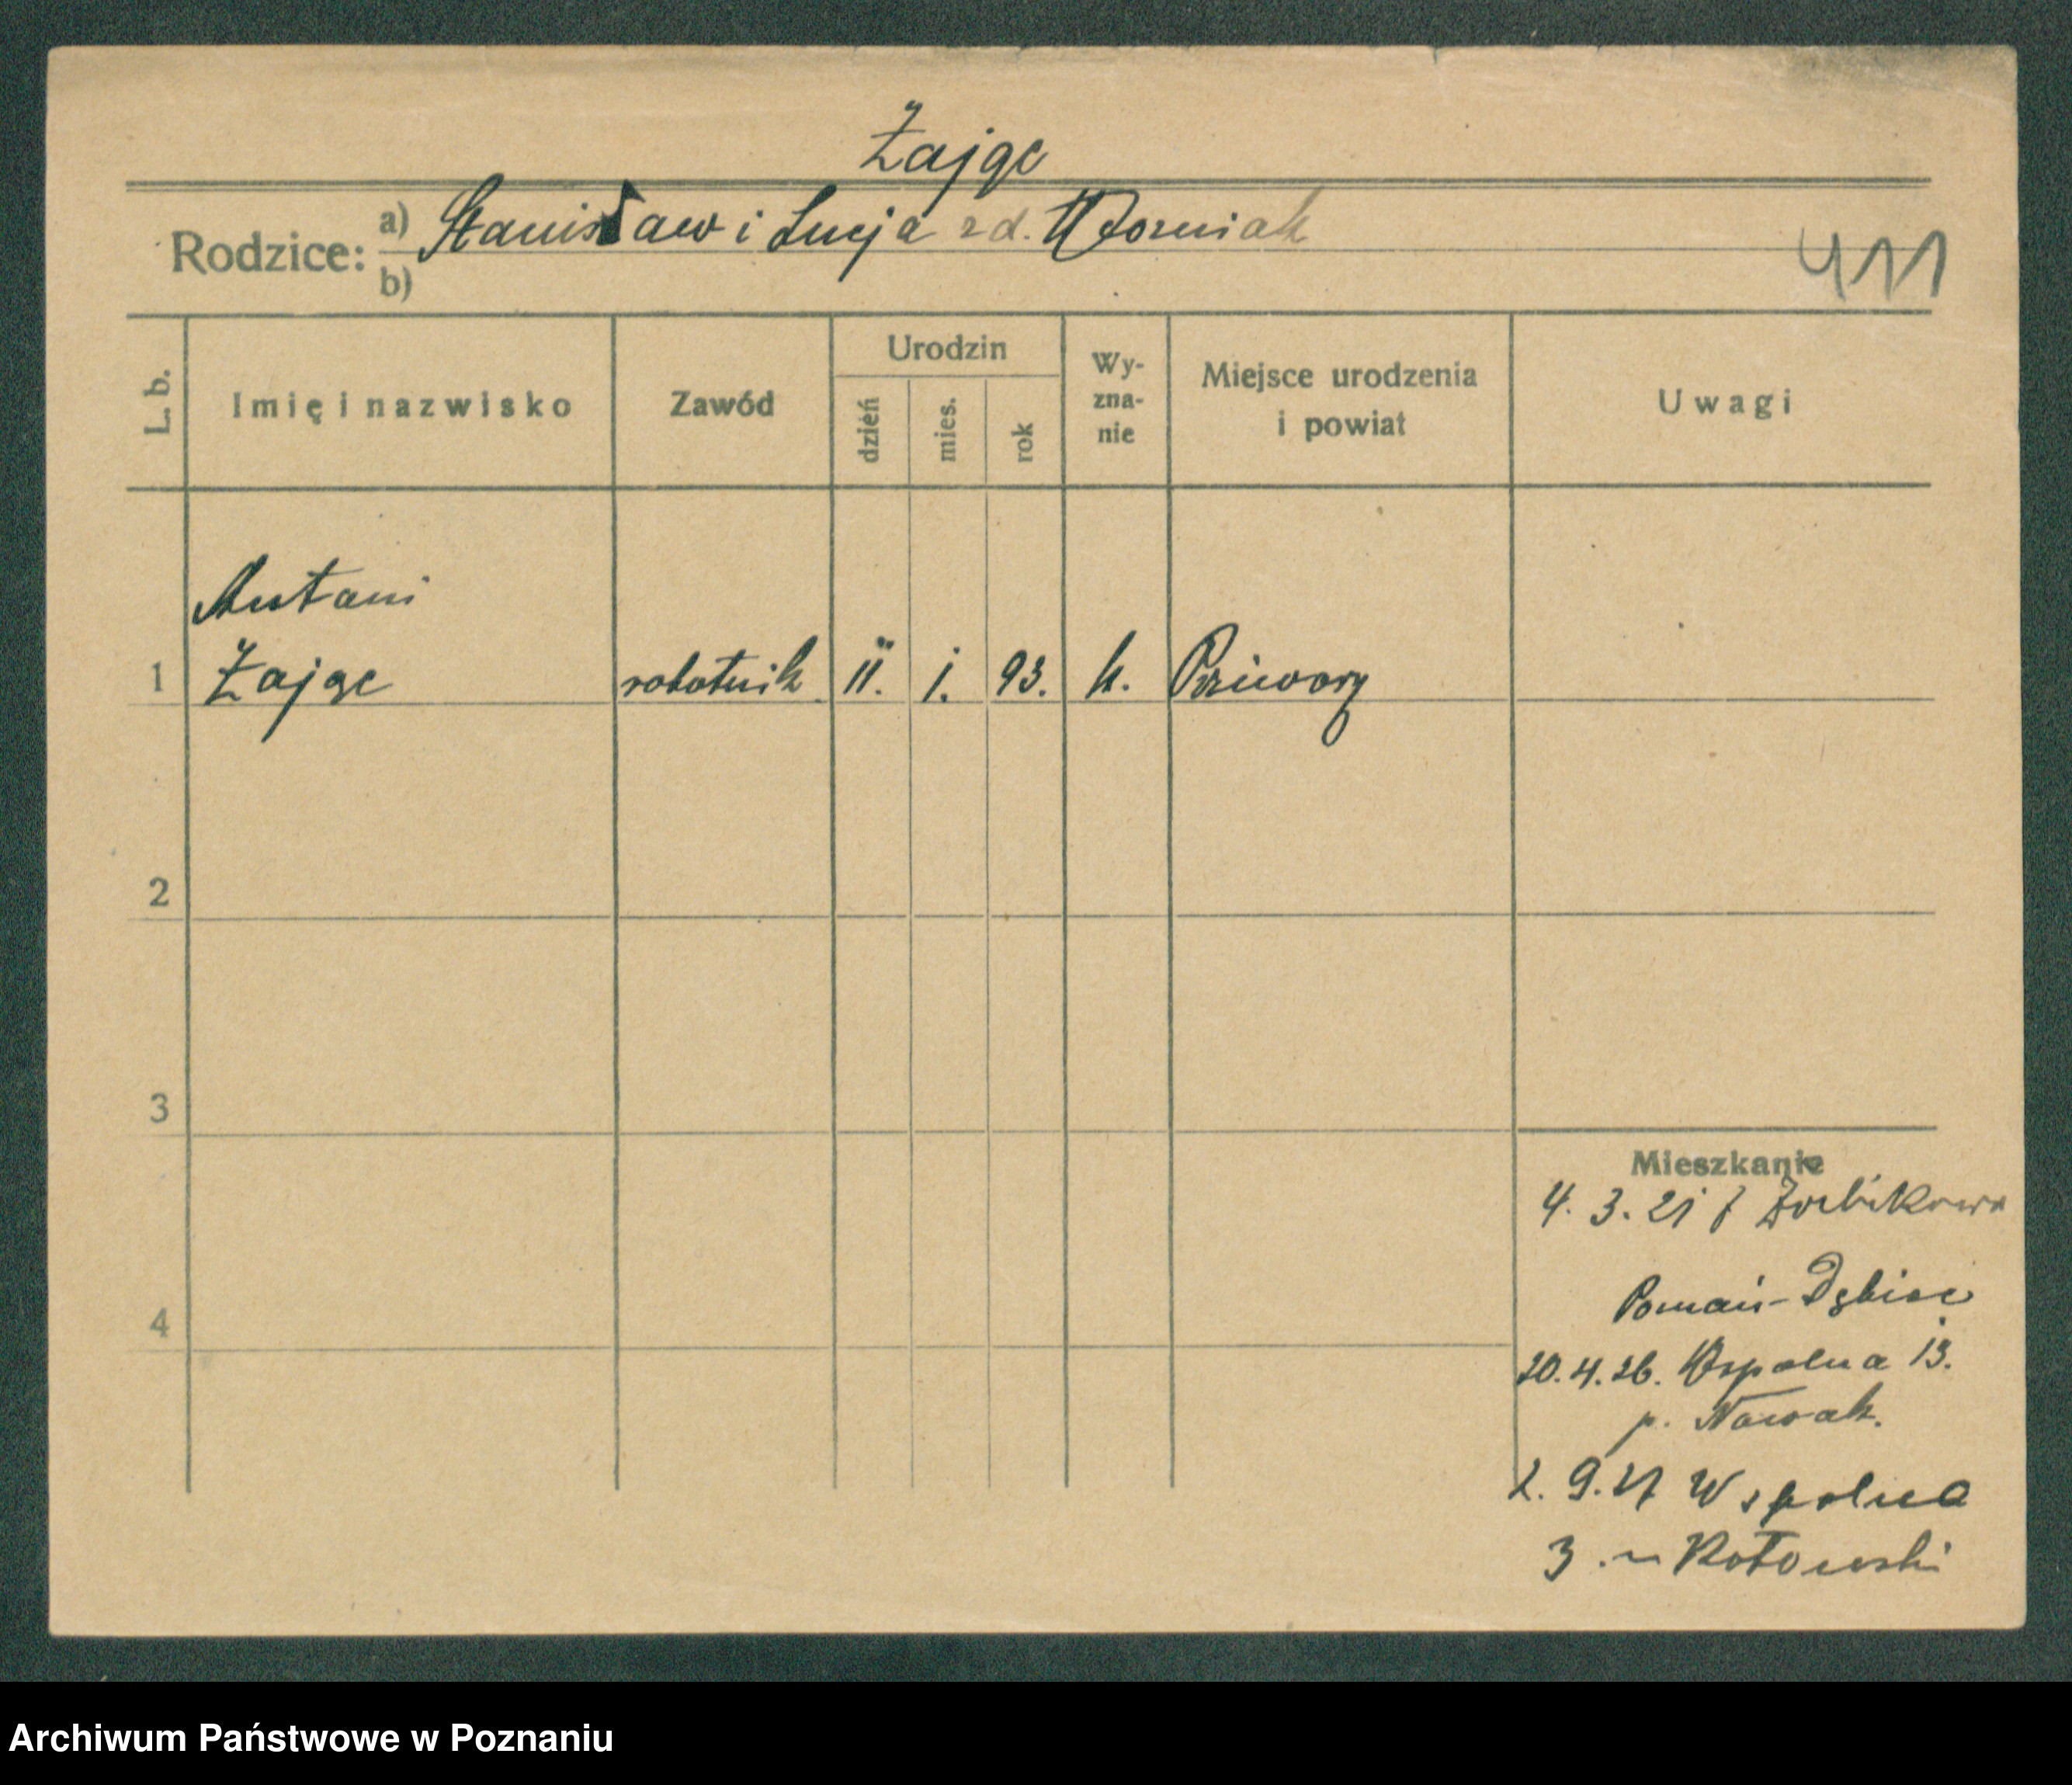 Zając
Rodzice: a) Stanisław i Łucja zd. Woźniak
b)
411
L. b.
Imię i nazwisko
Zawód
Urodzin
dzień
mies.
rok
Wy-
zna-
nie
Miejsce urodzenia
i powiat
Uwagi
Antoni
1 Zając robotnik 11. 1. 93. k.
2
3
4
Mieszkanie
4. 3. 21 Żabikowo
Poznań-Dębiec
20.4.26. Wspólna 13.
p. Nowak.
9.27 Wspólna
3 Kotowski
Archiwum Państwowe w Poznaniu